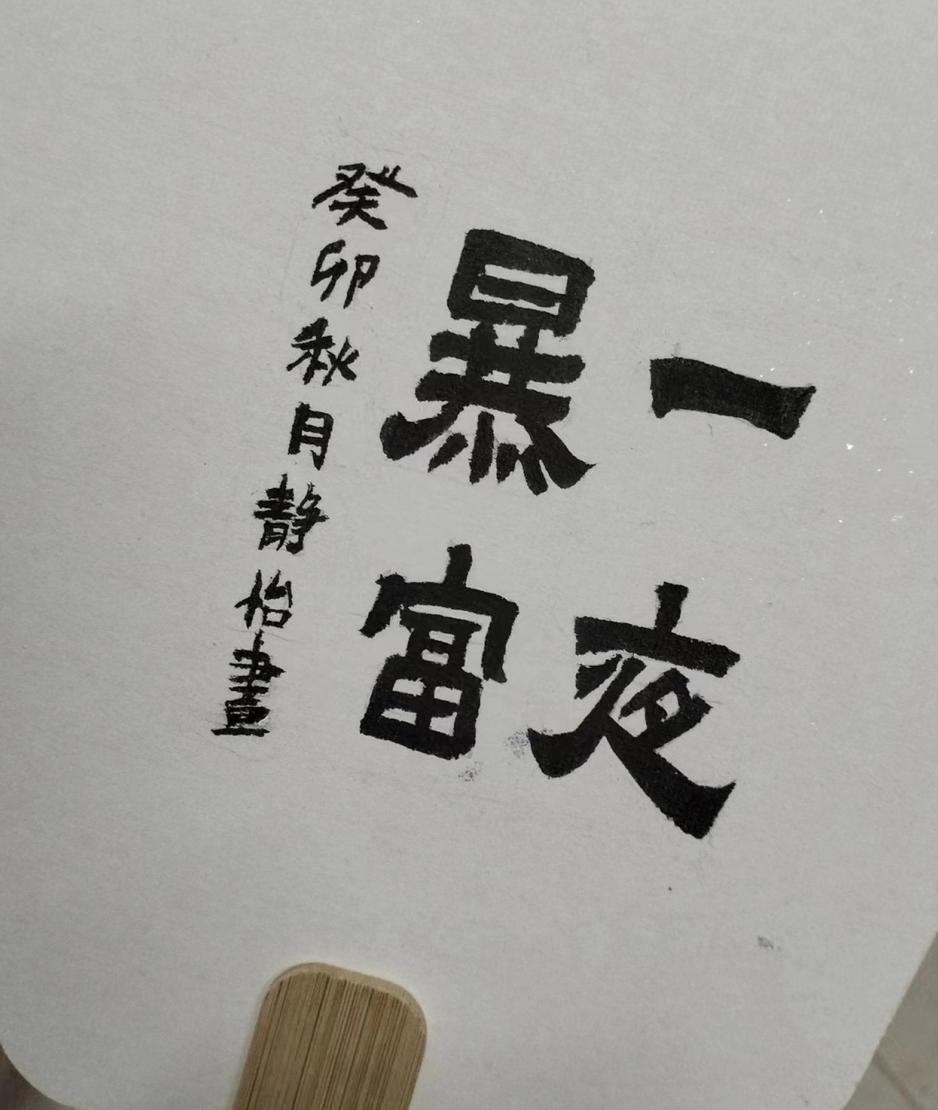 一夜
暴富
癸卯秋月静怡畫